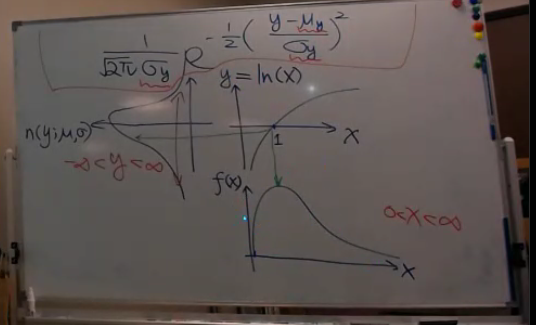 1/(√2π σy) e^(-1/2 ((y-μy)/σy)²)
y = ln(x)
n(y;μ,σ)
1
X
-∞ < y < ∞
f(x)
0<X<∞
X